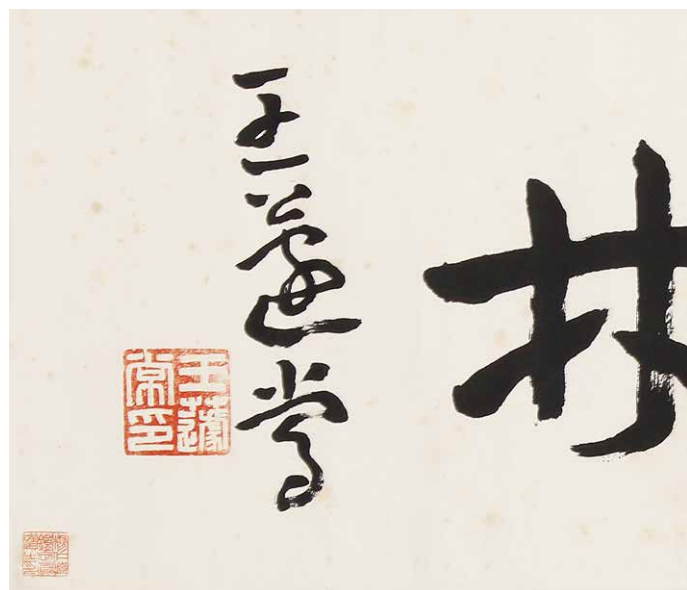 林
王蘧常
王蘧
常印